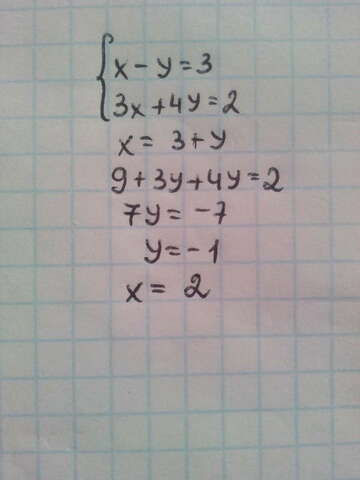 { x - y = 3
3x + 4y = 2
x = 3 + y
9 + 3y + 4y = 2
7y = -7
y = -1
x = 2